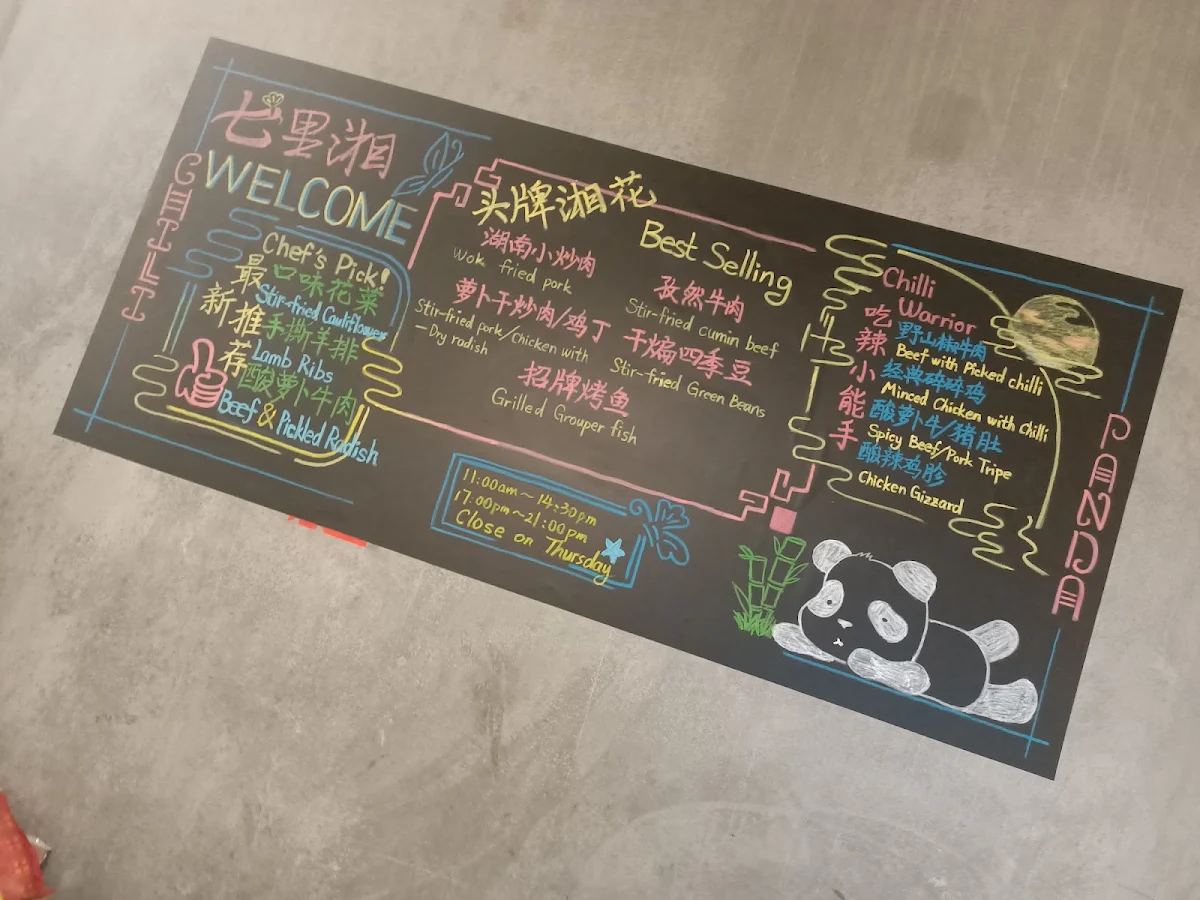 七里湘
WELCOME
CHILI
Chef's Pick!
最新推荐
口味花菜
Stir-fried Cauliflower
手撕羊排
Lamb Ribs
酸萝卜牛肉
Beef & Pickled Radish
头牌湘花
Best Selling
湖南小炒肉
Wok fried pork
萝卜干炒肉/鸡丁
Stir-fried pork/chicken with
—Dry radish
招牌烤鱼
Grilled Grouper fish
孜然牛肉
Stir-fried cumin beef
干煸四季豆
Stir-fried Green Beans
11:00am~14:30pm
17:00pm~21:00pm
Close on Thursday
Chilli
Warrior
吃辣小能手
野山椒牛肉
Beef with Picked chilli
经典碎碎鸡
Minced Chicken with Chilli
酸萝卜牛/猪肚
Spicy Beef/Pork Tripe
酸辣鸡胗
Chicken Gizzard
PANDA